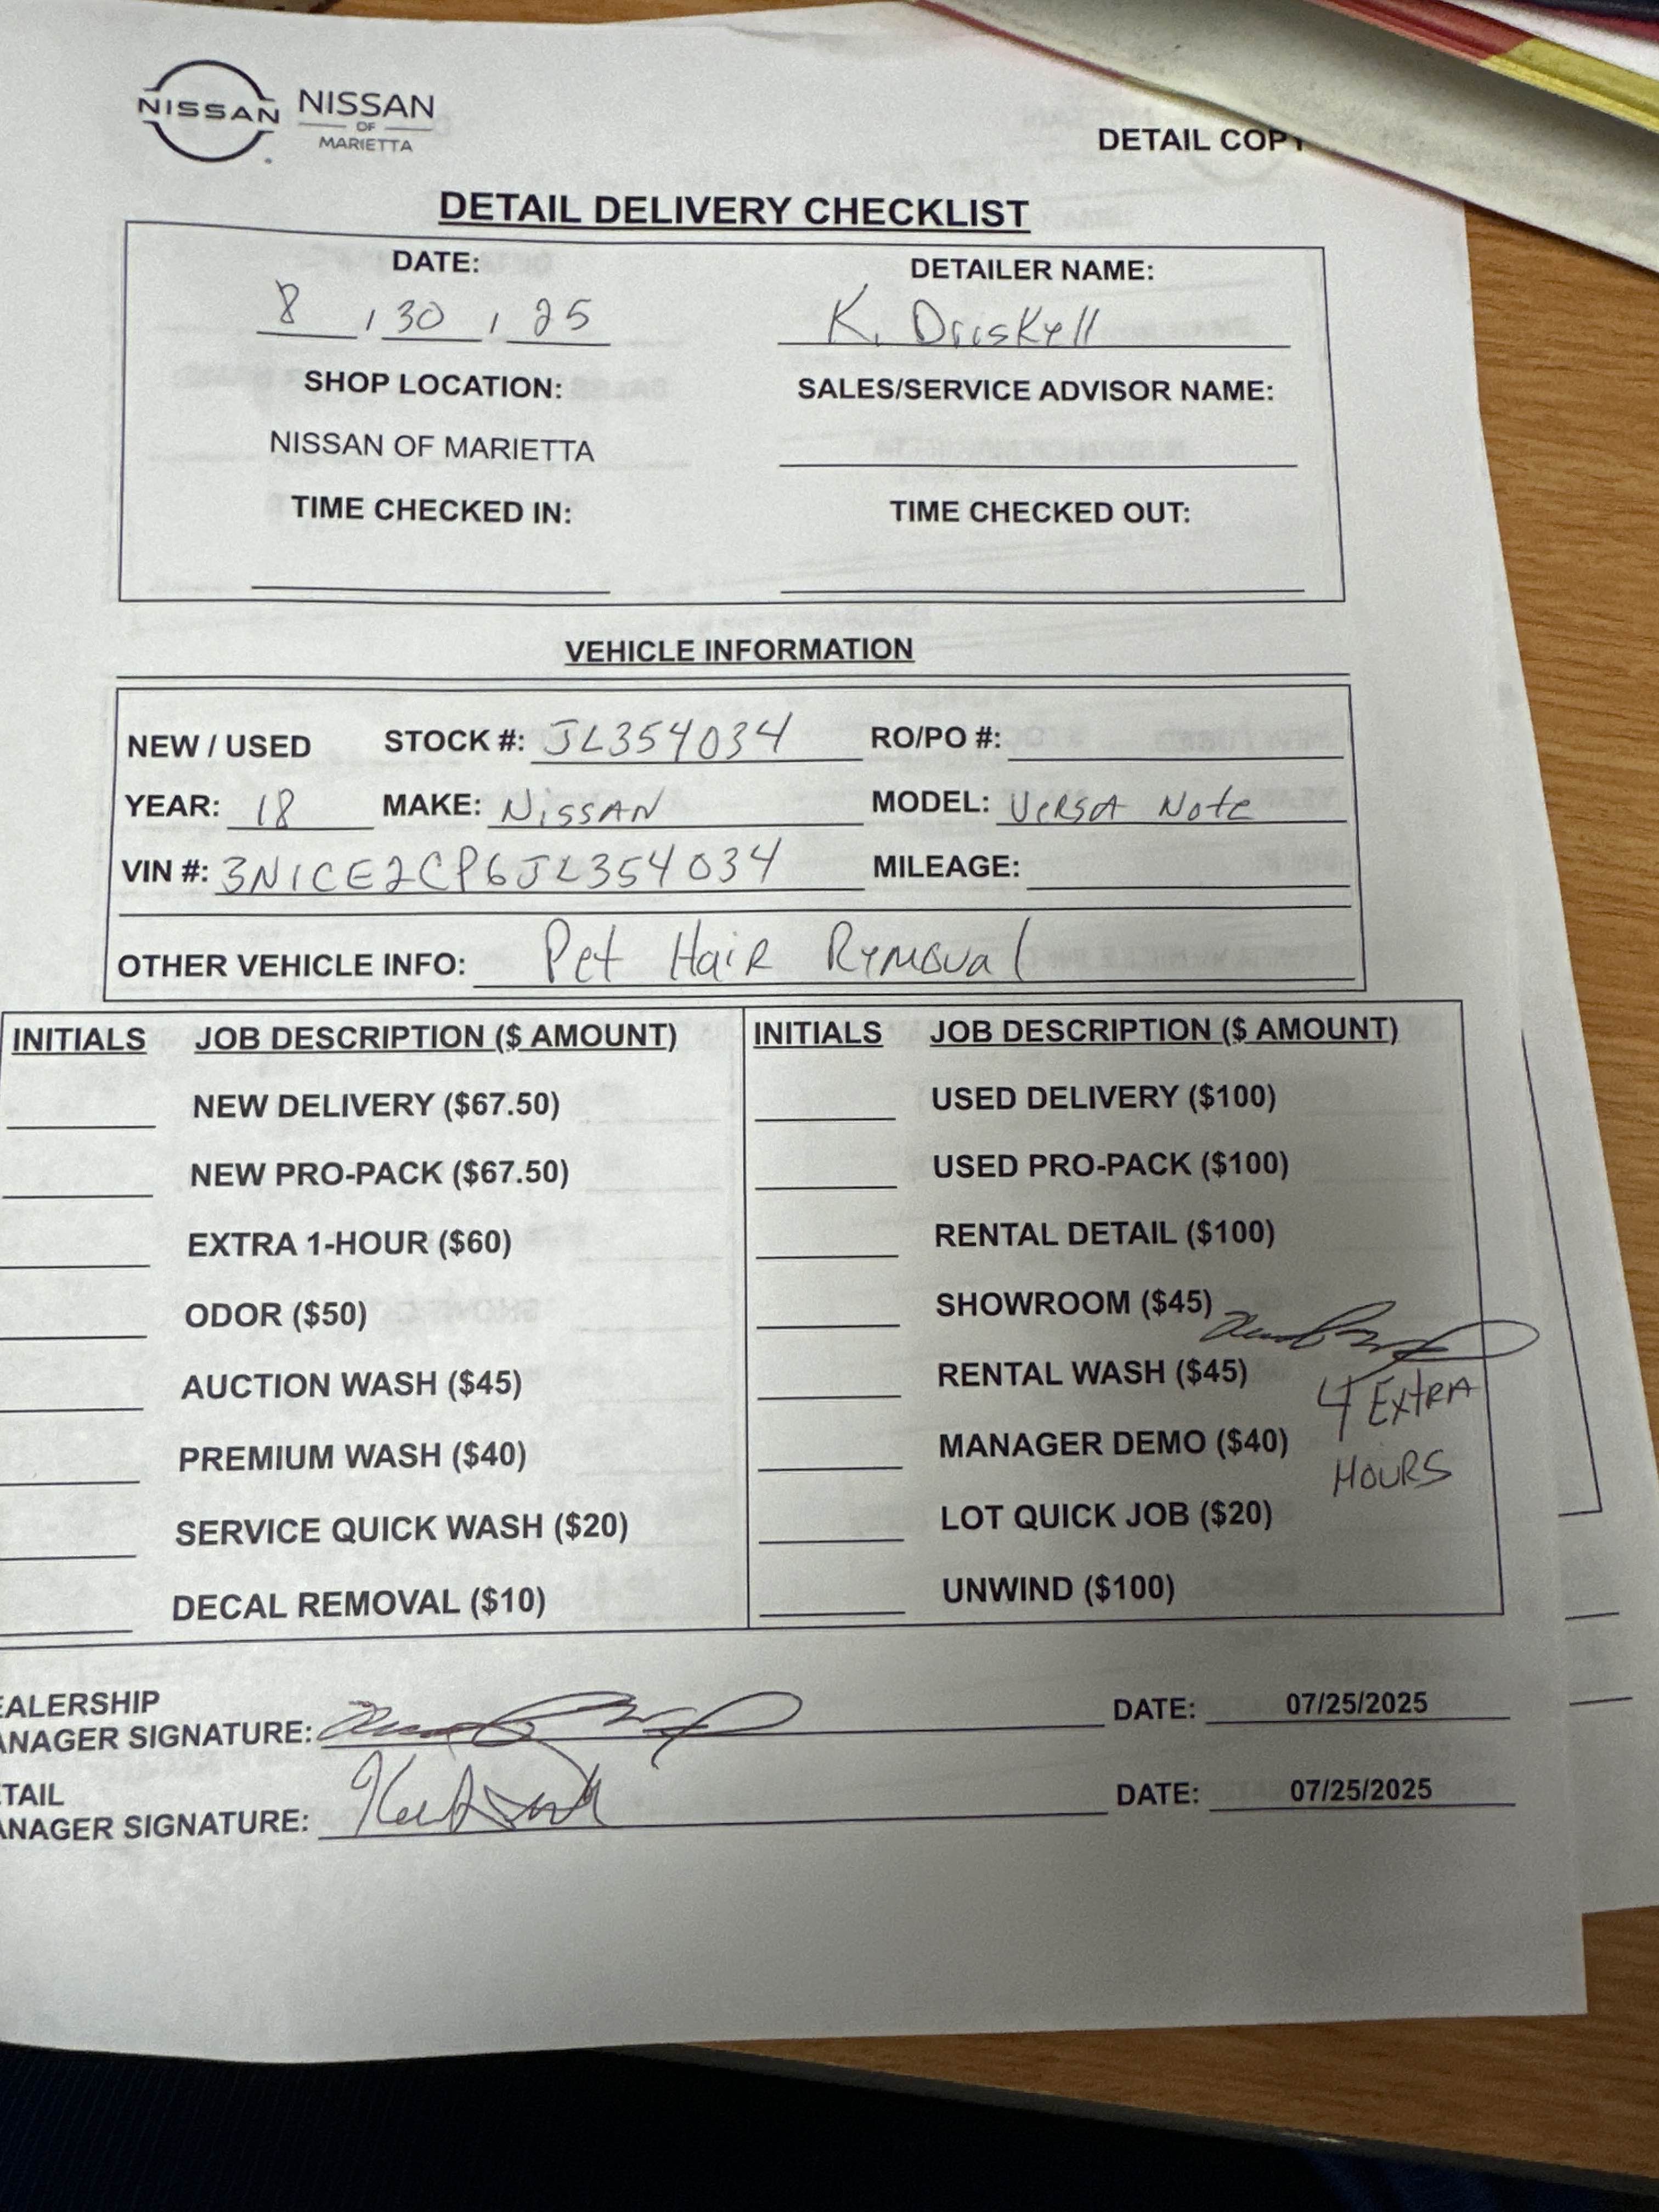 NISSAN NISSAN
OF
MARIETTA
DETAIL COPY
DETAIL DELIVERY CHECKLIST
DATE: DETAILER NAME:
8 / 30 / 25 K. Driskell
SHOP LOCATION: SALES/SERVICE ADVISOR NAME:
NISSAN OF MARIETTA
TIME CHECKED IN: TIME CHECKED OUT:
VEHICLE INFORMATION
NEW / USED STOCK #: JL354034 RO/PO #:
YEAR: 18 MAKE: NISSAN MODEL: VERSA Note
VIN #: 3N1CE2CP6JL354034 MILEAGE:
OTHER VEHICLE INFO: Pet Hair Removal
INITIALS JOB DESCRIPTION ($ AMOUNT) INITIALS JOB DESCRIPTION ($ AMOUNT)
NEW DELIVERY ($67.50) USED DELIVERY ($100)
NEW PRO-PACK ($67.50) USED PRO-PACK ($100)
EXTRA 1-HOUR ($60) RENTAL DETAIL ($100)
ODOR ($50) SHOWROOM ($45)
AUCTION WASH ($45) RENTAL WASH ($45)
4 EXTRA
PREMIUM WASH ($40) MANAGER DEMO ($40)
HOURS
SERVICE QUICK WASH ($20) LOT QUICK JOB ($20)
DECAL REMOVAL ($10) UNWIND ($100)
EALERSHIP
ANAGER SIGNATURE: DATE: 07/25/2025
ETAIL
ANAGER SIGNATURE: DATE: 07/25/2025